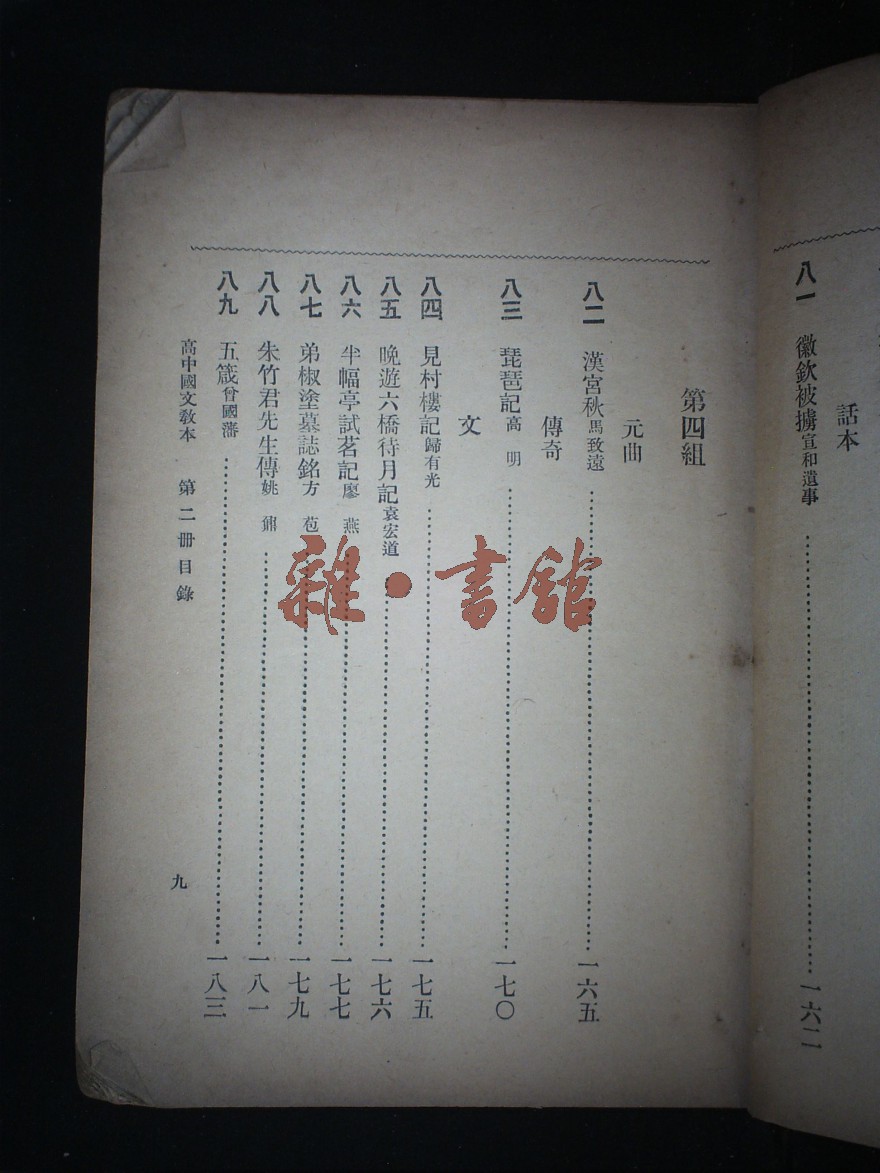 話本
八一 徽欽被擄宣和遺事…………一六二
第四組
元曲
八二 漢宮秋馬致遠…………一六五
傳奇
八三 琵琶記高 明…………一七〇
文
八四 見村樓記歸有光…………一七五
八五 晚遊六橋待月記袁宏道…………一七六
八六 半幅亭試茗記廖 燕…………一七七
八七 弟椒塗墓誌銘方 苞…………一七九
八八 朱竹君先生傳姚 鼐…………一八一
八九 五箴曾國藩…………一八三
高中國文教本 第二冊目錄
九
雜·書館